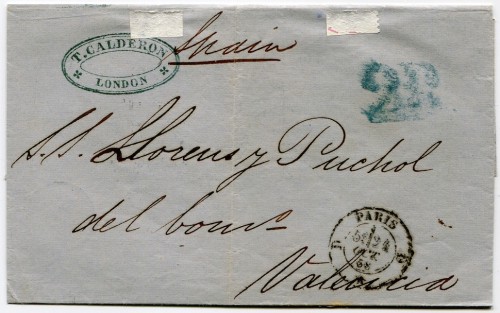 T. CALDERON
LONDON
Spain
2R
S.S. Llorens y Puchol
del comº
PARIS
Valencia